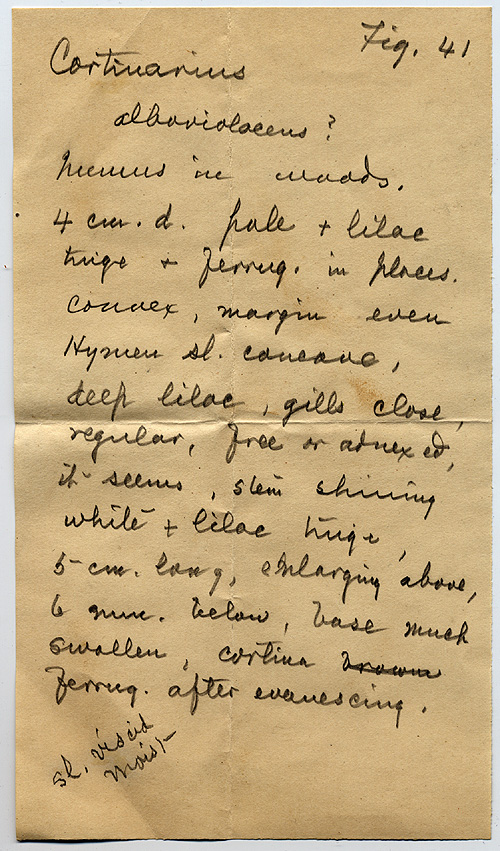 Fig. 41
Cortinarius
alboviolaceus?
humus in woods.
4 cm. d. pale + lilac
tinge + ferrug. in places.
convex, margin even
Hymen sl. concave,
deep lilac, gills close,
regular, free or adnexed,
it seems, stem shining
white + lilac tinge,
5 cm. long, enlarging above,
6 mm. below, base much
swollen, cortina brown
ferrug. after evanescing.
sl. viscid
moist